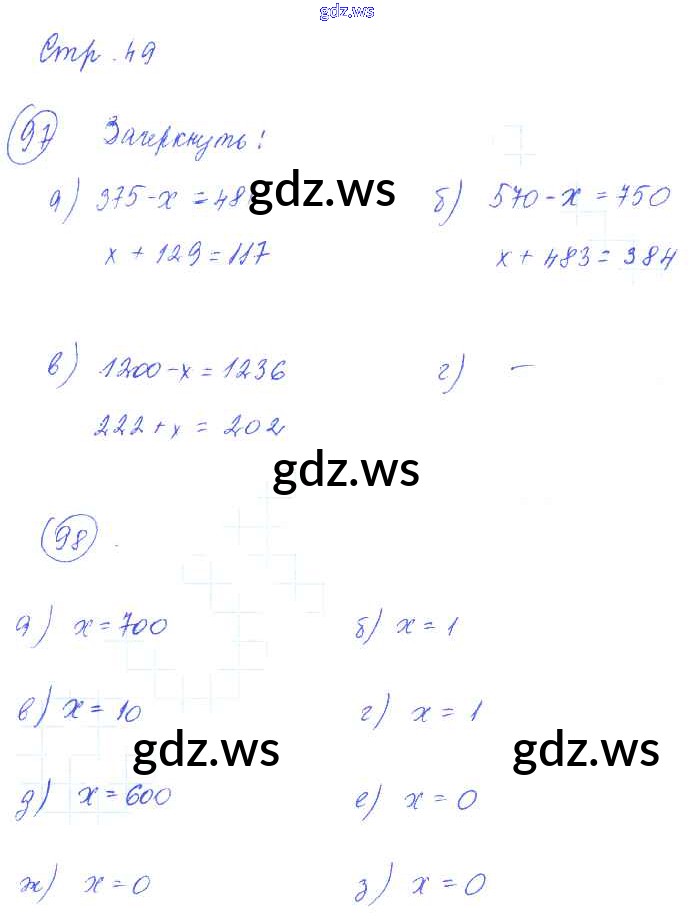 gdz.ws
Стр. 49
97 Зачеркнуть!
а) 375-x=48 б) 570-x=750
gdz.ws
x+129=117 x+483=384
в) 1200-x=1236 г) —
222+x=202
gdz.ws
98.
а) x=700 б) x=1
в) x=10 г) x=1
gdz.ws gdz.ws
д) x=600 е) x=0
ж) x=0 з) x=0